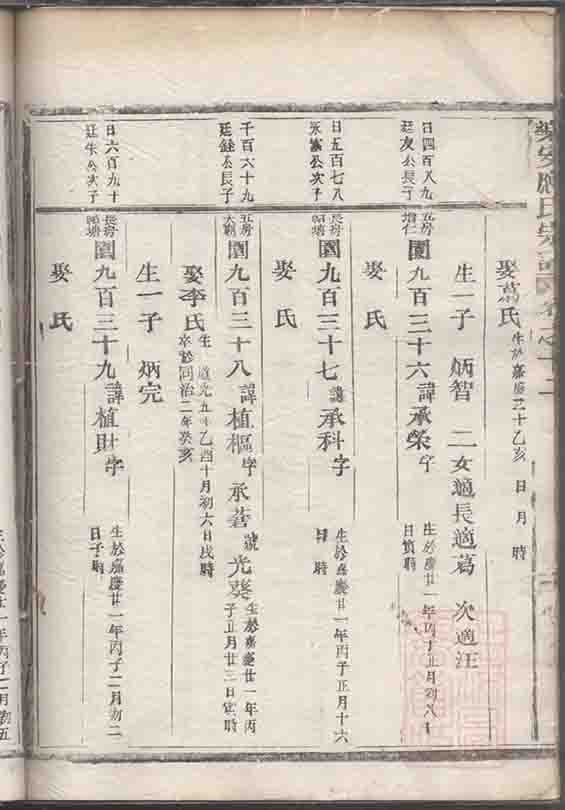 娶葛氏 生於嘉慶二十乙亥 日 月 時
生一子 炳智 二女適長適葛 次適汪
日四百八九
廷友公長子
五房
增仁
園九百三十六諱承榮字 生於嘉慶廿一年丙子正月初八
日寅時
娶 氏
日五百七八
公次子
長房
塘
園九百三十七諱承科字 生於嘉慶廿一年丙子正月十六
日 時
娶 氏
千百六十九
廷銓公長子
五房
大
園九百三十八諱植樞字承蒼號光葵 生於嘉慶廿一年丙
子正月廿三日寅時
娶李氏 生道光五年乙酉十月初六日戌時
卒於同治二年癸亥
生一子 炳完
日六百九十
廷 公次子
長房
塘
園九百三十九諱植財字 生於嘉慶廿一年丙子二月初二
日子時
娶 氏
生於嘉慶廿一年丙子二月初五